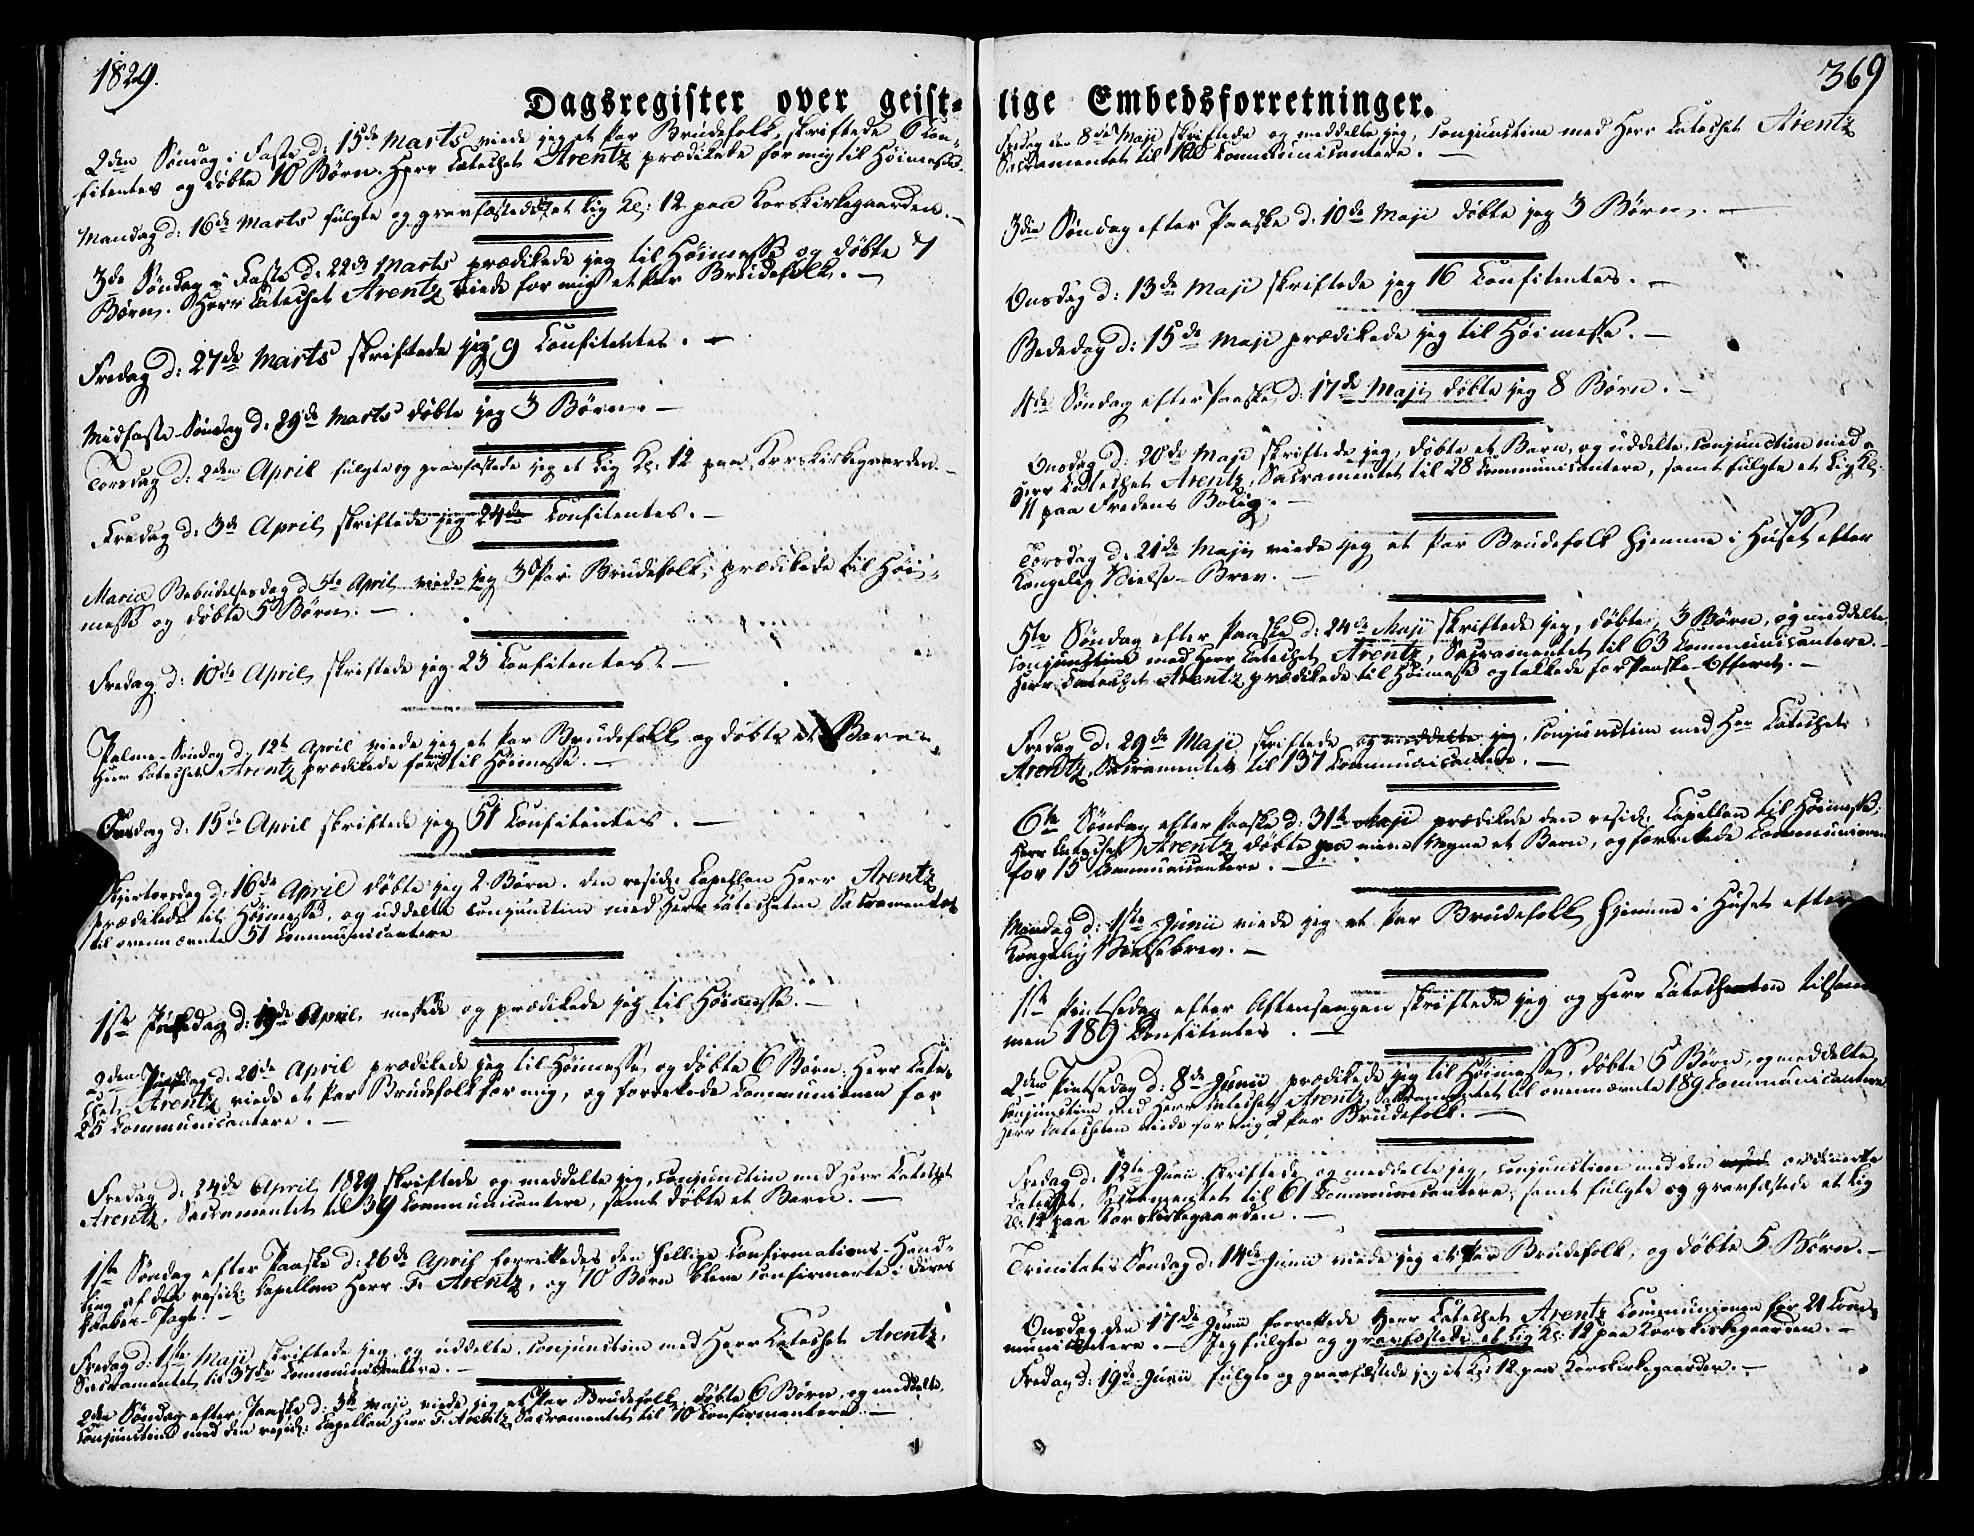 1829.
369
Dagsregister over geist-
lige Embedsforretninger.
2den Søndag i Faste d: 15de Marts viede jeg et Par Brudefolk, skriftede 6 Con-
fitentes og døbte 10 Børn. Herr Catechet Arentz prædikede for mig til Høimesse.
Mandag d: 16de Marts fulgte og gravfæstede et Lig Kl: 12 paa Korskirkegaarden. —
3de Søndag i Faste d. 22de Marts prædikede jeg til Høimesse og døbte 7
Børn. Herr Catechet Arentz viede for mig et Par Brudefolk. —
Fredag d: 27de Marts skriftede jeg 9 Confitentes. —
Midfaste-Søndag d. 29de Marts døbte jeg 3 Børn. —
Torsdag d: 2den April fulgte og gravfæstede jeg et Lig Kl: 12 paa Korskirkegaarden. —
Fredag d: 3de April skriftede jeg 24de Confitentes. —
Mariæ Bebudelsesdag d 5te April viede jeg 3 Par Brudefolk, prædikede til Høi-
messe og døbte 5 Børn. —
Fredag d: 10de April skriftede jeg 23 Confitentes. —
Palme-Søndag d. 12te April viede jeg et Par Brudefolk og døbte et Barn.
Herr Catechet Arentz prædikede for mig til Høimesse. —
Onsdag d. 15de April skriftede jeg 51 Confitentes. —
Skjertorsdag d. 16de April døbte jeg 2 Børn. Den resid: Capellan Herr Arentz
prædikede til Høimesse, og uddelte conjunctim med Herr Catecheten Sacramentet
til ovennævnte 51 Communicantere
1ste Paaskedag d: 19de April messede og prædikede jeg til Høimesse. —
2den Paaskedag d. 20de April prædikede jeg til Høimesse og døbte 6 Børn. Herr Cate-
chet Arentz viede et Par Brudefolk for mig, og forrettede Communionen for
25 Communicantere. —
Fredag d. 24de April 1829 skriftede og meddelte jeg, conjunctim med Herr Catechet
Arentz, Sacramentet til 39 Communicantere, samt døbte et Barn. —
1ste Søndag efter Paaske d: 26de April forrettedes den hellige Confirmations-Hand-
ling af den resid: Capellan Herr F. Arentz, og 70 Børn bleve confirmerte i deres
Daabes-Pagt. —
Fredag d: 1ste Maji skriftede jeg, og uddelte, conjunctim med Herr Catechet Arentz,
Sacramentet til 37de Communicantere. —
2den Søndag efter Paaske d. 3de Maji viede jeg et Par Brudefolk, døbte 6 Børn, og meddelte,
conjunctim med den resid: Capellan Herr F. Arentz Sacramentet til 70 Confirmantere. —
Fredag den 8de Maji skriftede og meddelte jeg, conjunctim med Herr Catechet Arentz
Sacramentet til Communicantere. —
3die Søndag efter Paaske d. 10de Maji døbte jeg 3 Børn. —
Onsdag d: 13de Maji skriftede jeg 16 Confitentes. —
Bededag d: 15de Maji prædikede jeg til Høimesse. —
4de Søndag efter Paaske d: 17de Maji døbte jeg 8 Børn. —
Onsdag d: 20de Maji skriftede jeg, døbte et Barn, og uddelte, conjunctim med
Herr Catechet Arentz, Sacramentet til 28 Communicantere, samt fulgte et Lig Kl:
11 paa Fredens Bolig. —
Torsdag d. 21de Maji viede jeg et Par Brudefolk hjemme i Huset efter
Kongelig Vielse-Brev. —
5te Søndag efter Paaske d: 24de Maji skriftede jeg, døbte 3 Børn, og meddelte,
conjunctim med Herr Catechet Arentz, Sacramentet til 63 Communicantere. —
Herr Catechet Arentz prædikede til Høimesse og takkede for Paaske-Offeret. —
Fredag d. 29de Maji skriftede og meddelte jeg, conjunctim med Herr Catechet
Arentz, Sacramentet til 137 Communicantere. —
6te Søndag efter Paaske d: 31te Maji prædikede den resid: Capellan til Høimesse;
Herr Catechet Arentz døbte paa mine Vegne et Barn, og forrettede Communionen
for 15 Communicantere. —
Mandag d: 1ste Junii viede jeg et Par Brudefolk hjemme i Huset efter
Kongelig Vielsebrev. —
1ste Pintsedag efter Aftensangen skriftede jeg og Herr Catecheten tilsam-
men 189 Confitentes. —
2den Pintsedag d: 8de Junii prædikede jeg til Høimesse, døbte 5 Børn, og meddelte,
conjunctim med Herr Catechet Arentz, Sacramentet til ovennævnte 189 Communicantere
Herr Catecheten viede for mig 2 Par Brudefolk. —
Fredag d: 12te Junii skriftede og meddelte jeg, conjunctim med den ordinerte
Catechet, Sacramentet til 61 Communicantere; samt fulgte og gravfæstede et Lig
Kl: 12 paa Korskirkegaarden. —
Trinitatis Søndag d: 14de Junii viede jeg et Par Brudefolk, og døbte 5 Børn. —
Onsdag den 17de Junii forrettede Herr Catechet Arentz Communionen for 21 Com-
municantere. — Jeg fulgte og gravfæstede et Lig Kl: 12 paa Korskirkegaarden. —
Fredag d: 19de Junii fulgte og gravfæstede jeg et Lig 12 paa Korskirkegaarden. —